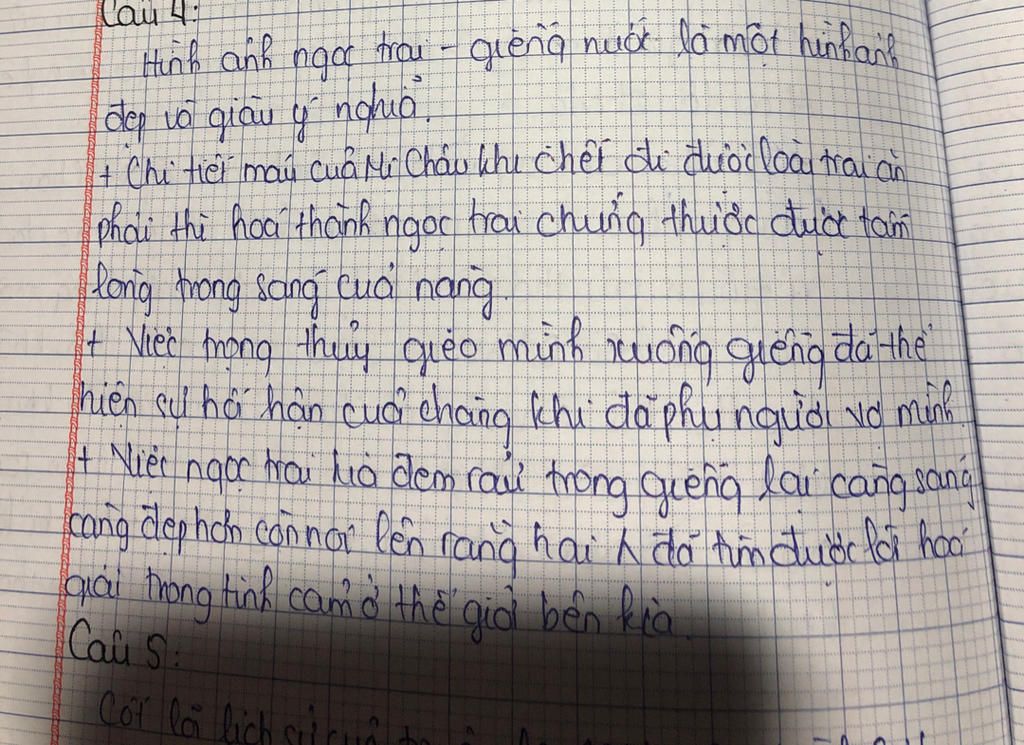 Câu 4:
Hình ảnh ngọc trai - giếng nước là một hình ảnh
đẹp và giàu ý nghĩa.
+ Chi tiết máu của Mị Châu khi chết đi được loài trai ăn
phải thì hoá thành ngọc trai chứng thước được tấm
lòng trong sáng của nàng
+ Việc trọng thủy gieo mình xuống giếng đã thể
hiện sự hối hận của chàng khi đã phụ người vợ mình.
+ Việc ngọc trai mà đem rửa trong giếng lại càng sáng
càng đẹp hơn còn nói lên rằng hai đã tìm được lời hoá
giải trong tình cảm ở thế giới bên kia.
Câu 5:
Cốt lõi lịch sử của